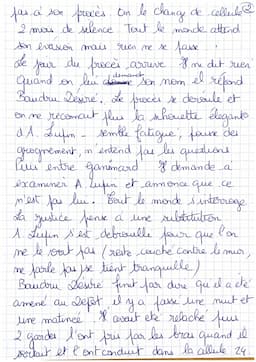 pas à son procès. On le change de cellule ②
2 mois de silence Tout le monde attend
son évasion mais rien ne se passe.
Le jour du procès arrive. Il ne dit rien
quand on lui demande son nom il répond
Baudru Désiré. Le procès se déroule et
on ne reconnait plus la silhouette élégante
d'A. Lupin - semble fatigué, pousse des
grognement, n'entend pas les questions
Puis entre ganimard. Il demande à
examiner A. Lupin et annonce que ce
n'est pas lui. Tout le monde s'interroge
La justice pense à une substitution
A. Lupin s'est debrouillé pour que l'on
ne le voit pas (reste couché contre le mur,
ne parle pas se tient tranquille)
Baudru Desiré finit par dire qu'il a été
amené au Dépôt il y a passé une nuit et
une matinée Il avait été relaché puis
2 gardes l'ont pris par les bras quand il
sortait et l'ont conduit dans la cellule 24.